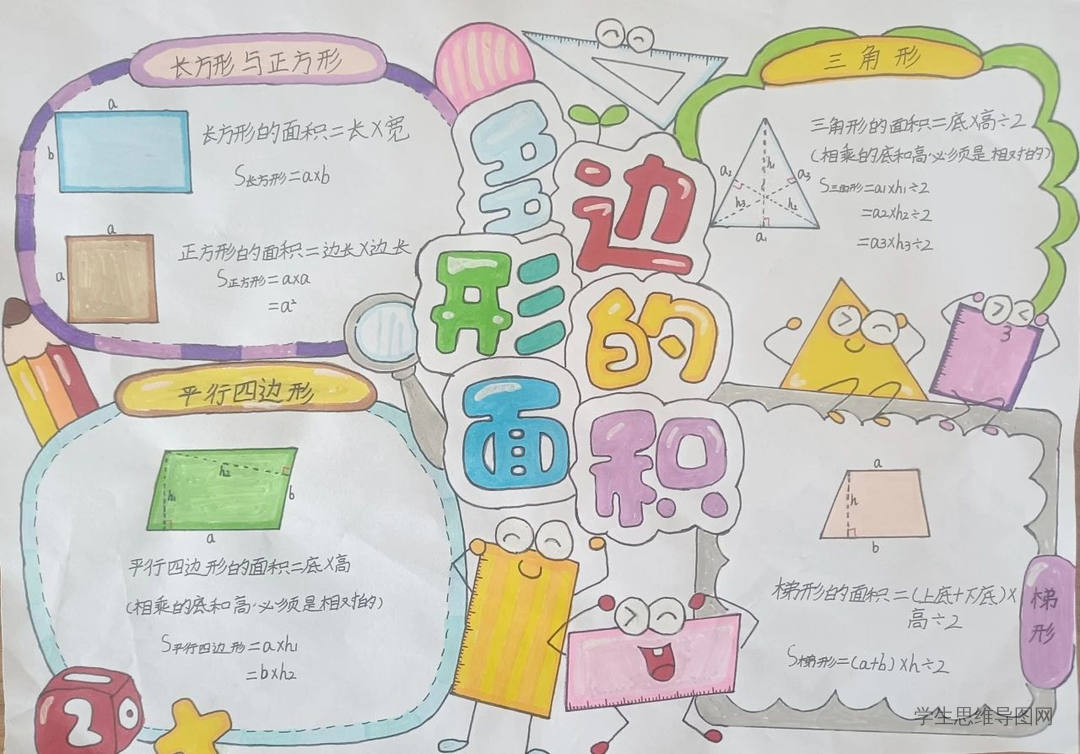 多边形的面积
长方形与正方形
a
b
长方形的面积=长×宽
S长方形=a×b
a
a
正方形的面积=边长×边长
S正方形=a×a
=a²
三角形
a₂
a₃
h₁
h₃
h₂
a₁
三角形的面积=底×高÷2
(相乘的底和高必须是相对的)
S三角形=a1×h1÷2
=a2×h2÷2
=a3×h3÷2
3
平行四边形
h₂
h₁
b
a
平行四边形的面积=底×高
(相乘的底和高必须是相对的)
S平行四边形=a×h1
=b×h2
2
梯形
a
h
b
梯形的面积=(上底+下底)×
高÷2
S梯形=(a+b)×h÷2
学生思维导图网